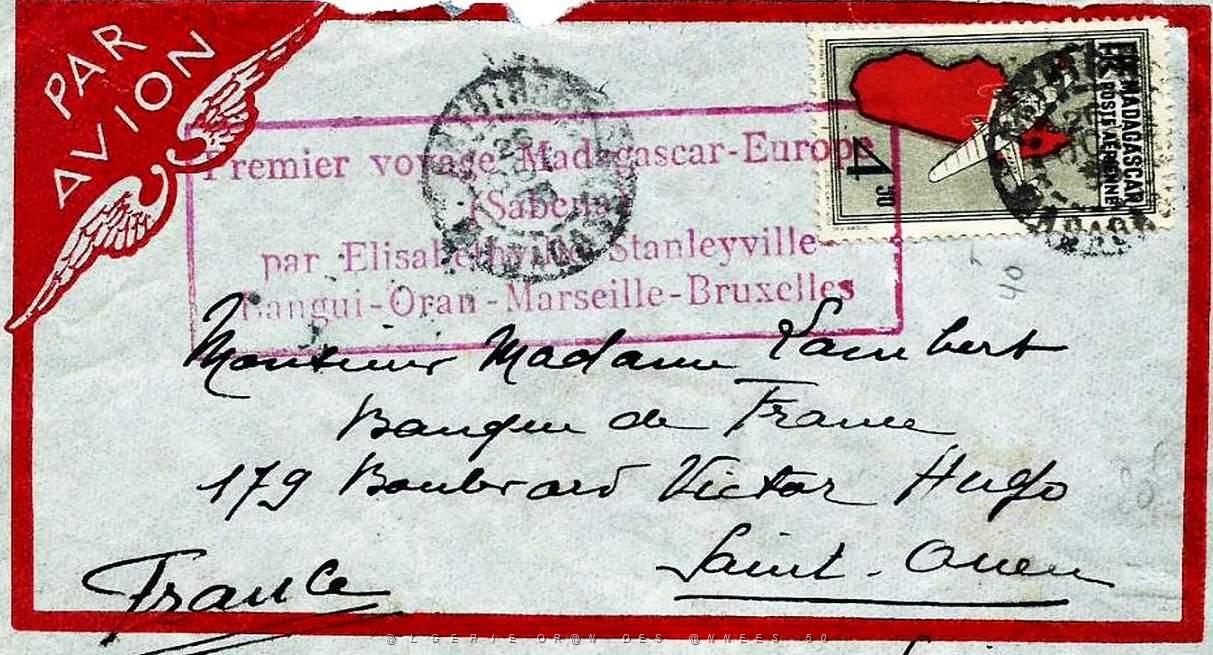 PAR
AVION
Premier voyage Madagascar-Europe
(Sabena)
par Elisabethville Stanleyville
Bangui-Oran-Marseille-Bruxelles
MADAGASCAR
POSTE AÉRIENNE
4 50
40
Monsieur Madame Lambert
Banque de France
179 Boulevard Victor Hugo
Saint-Ouen
France
@LGERIE OR@N DES @NNEES 50